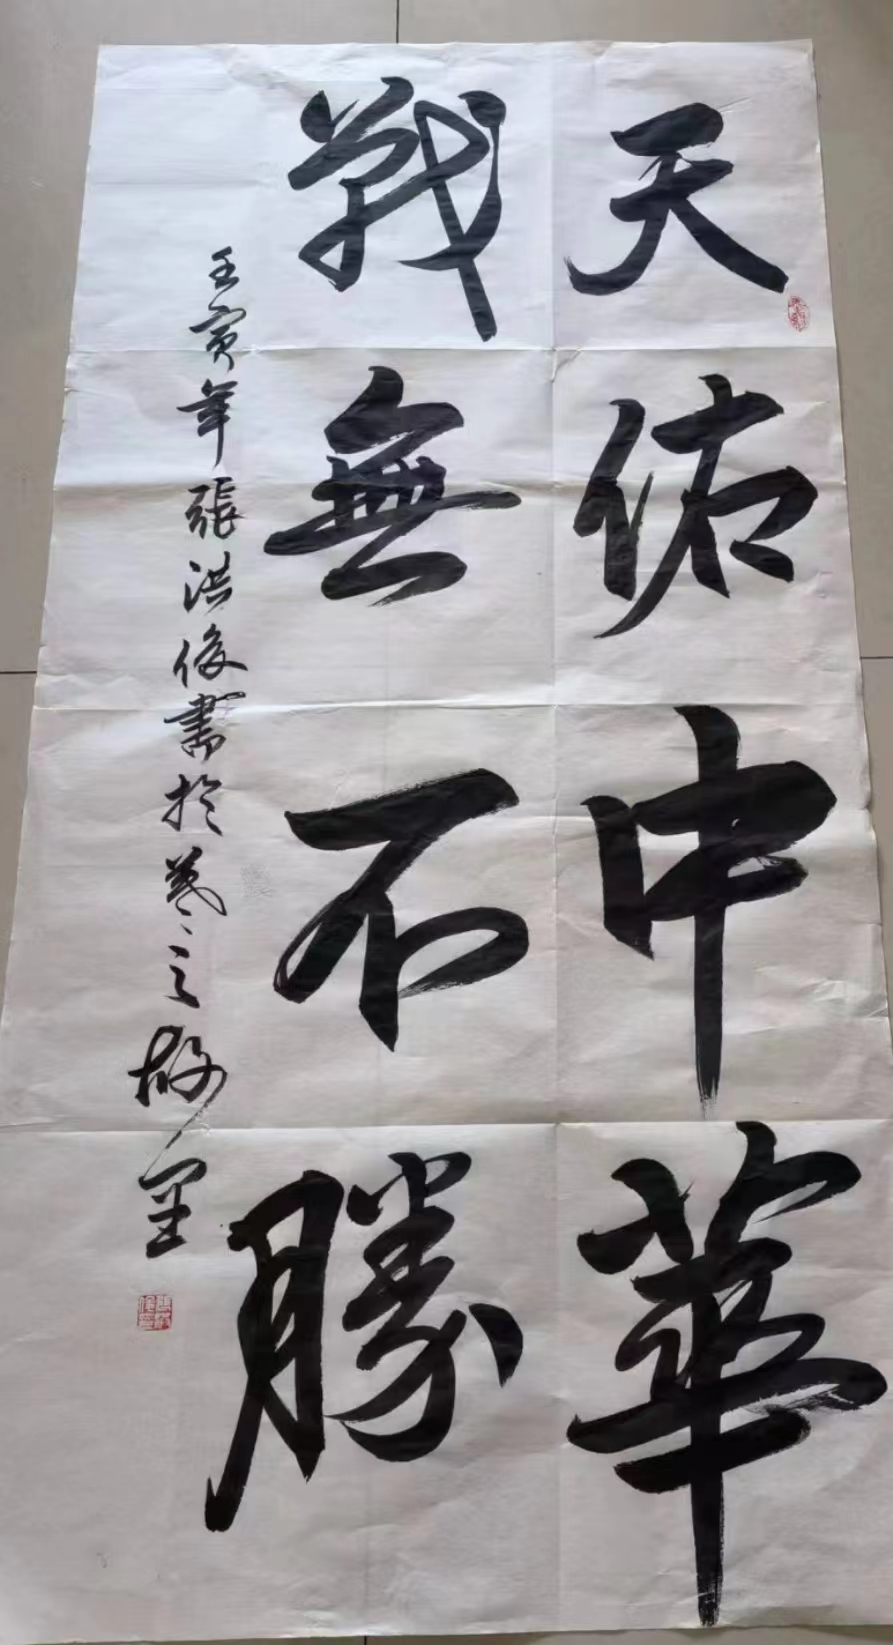 天佑中華
戰無不勝
壬寅年張洪俊書於羲之故里